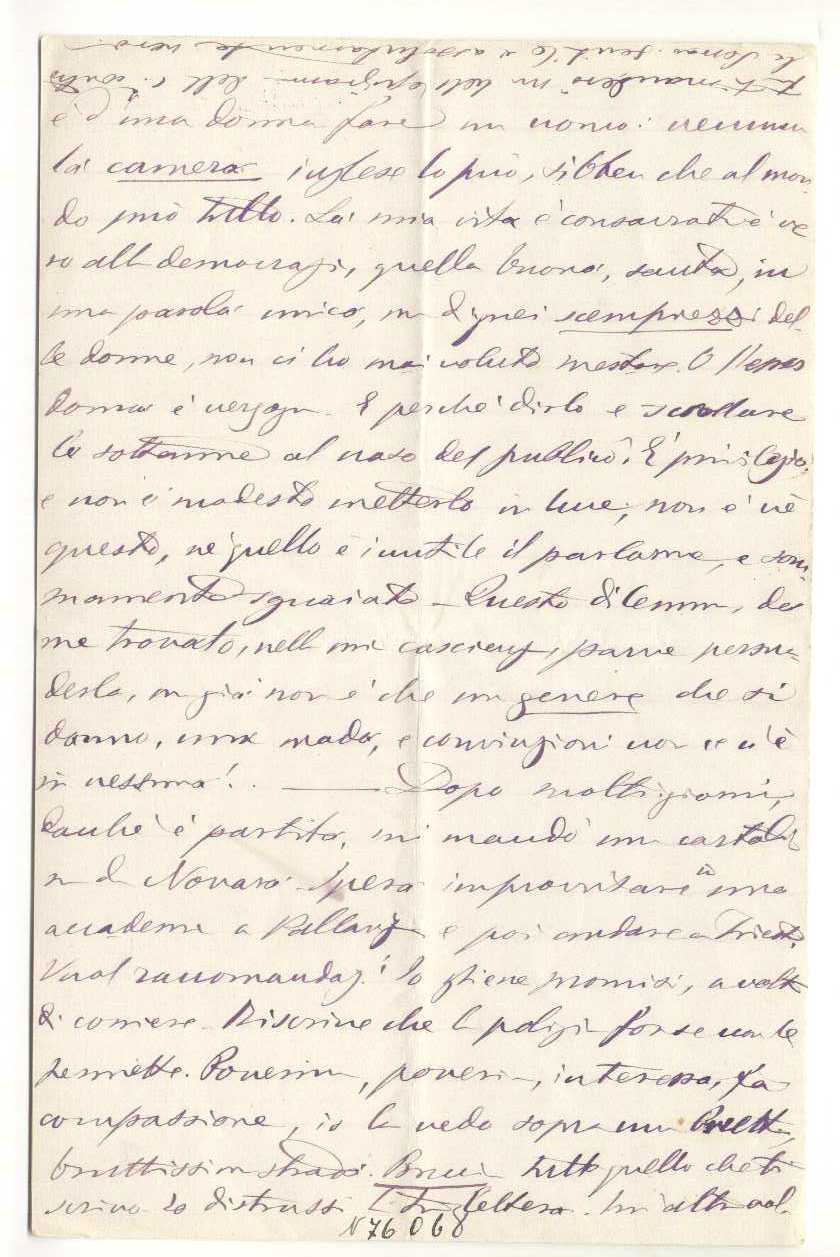 e d'una donna fare un uomo: nemmen
la camera inglese lo può, sibben che al mon
do può tutto. La mia vita è consacrata è ve
ro alla democrazi, quella buona, santa, in
una parola unica, ma
le donne, non ci ho mai voluto mestare. O l'esser
donna è vergogn. E perchè dirlo e
le sottanne al naso del publico? È privilegio,
e non è modesto metterlo in luce; non è nè
questo, nè quello è inutile il parlarne, e som
mamente sguaiato - Questo dilemm, da
me trovato, nell mi coscienz, parve persua
derla, ma già non è che un genere che si
danno, una moda, e convinzioni non ce n'è
in nessuna!.. Dopo molti giorni,
dacchè è partita, mi mandò un cartoli
n da Novara. Spera improvvisare in una
accademi a Pallanz e poi andare a Triest.
Vuol raccomandaz.! Io gliene promisi, a volt
di corriere. Riscrive che l polizi forse non le
permette. Poverina, poveri, interessa, fa
compassione, io la vedo sopra una brutta,
bruttissim strada. Bruci tutto quello che ti
scrivo io distrussi l tu lettera. Un altra vol
N 76 068